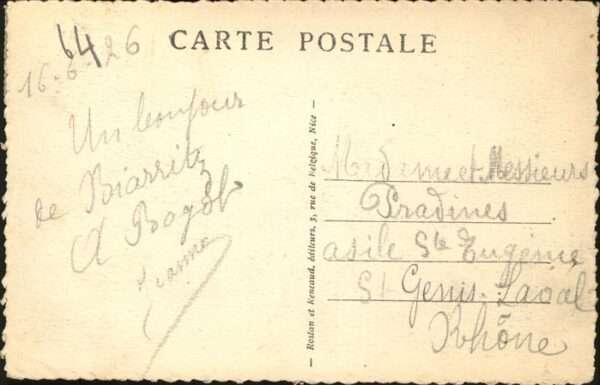 CARTE POSTALE
64
16-6-26
Un bonjour
de Biarritz
Jeanne
Rostan et Kencaud, éditeurs, 3, rue de Belgique, Nice
Madame et Messieurs
Pradines
asile Ste Eugénie
St Genis-Laval
Rhône